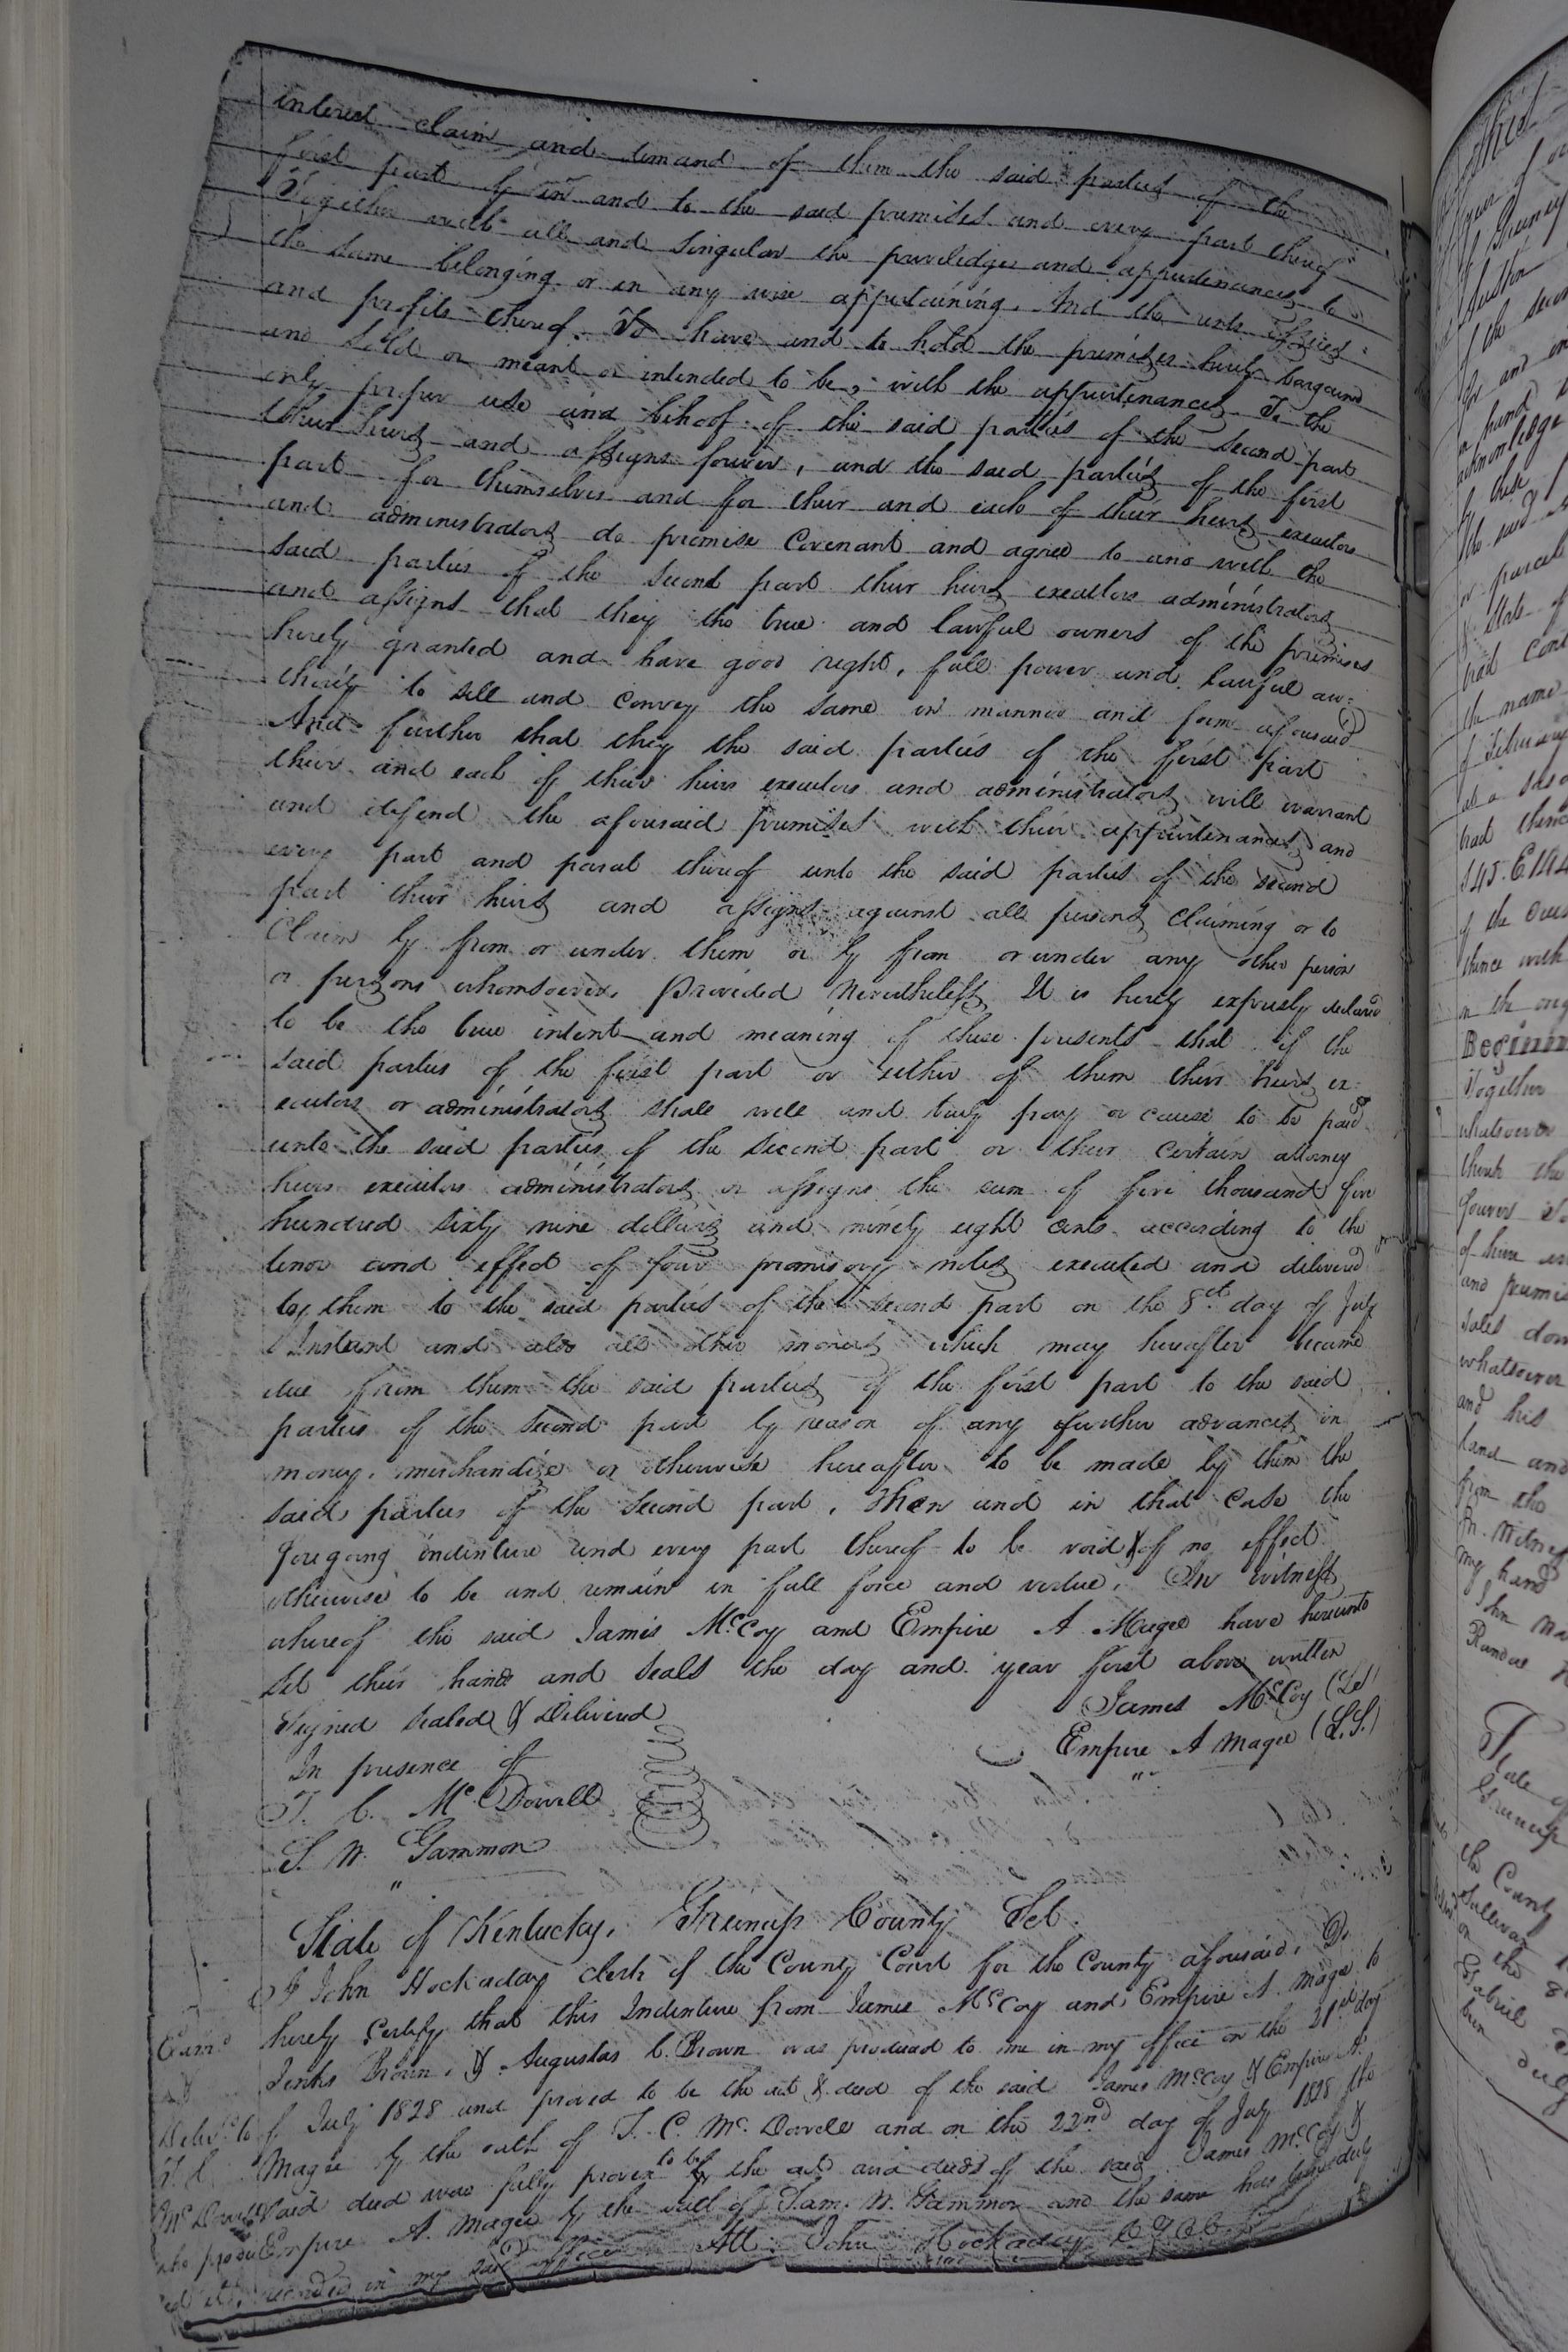 interest claim and demand of them the said parties of the
first part of in and to the said premises and every part thereof
Together with all and singular the priviledges and appurtenances to
the same belonging or in any wise appertaining. And the rents issues
and profits thereof. To have and to hold the premises hereby bargained
and sold or meant or intended to be, with the appurtenances To the
only proper use and behoof of the said parties of the second part
their heirs and assigns forever, and the said parties of the first
part for themselves and for their and each of their heirs executors
and administrators do promise Covenant and agree to and with the
said parties of the second part their heirs executors administrators
and assigns that they the true and lawful owners of the premises
hereby granted and have good right, full power and lawful au=
thority to sell and convey the same in manner and form aforesaid
And further that they the said parties of the first part
their and each of their heirs executors and administrators will warrant
and defend the aforesaid premises with their appurtenances and
every part and parcel thereof unto the said parties of the second
part their heirs and assigns against all persons claiming or to
Claim by from or under them or by from or under any other person
or persons whomsoever. Provided Nevertheless It is hereby expressly declared
to be the true intent and meaning of these presents that if the
said parties of the first part or either of them their heirs ex=
ecutors or administrators shall well and truly pay or cause to be paid
unto the said parties of the second part or their certain attorney
heirs executors administrators or assigns the sum of five thousand five
hundred sixty nine dollars and ninety eight cents according to the
tenor and effect of four promisory notes executed and delivered
by them to the said parties of the second part on the 8th day of July
Instant and also all other moneys which may hereafter become
due from them the said parties of the first part to the said
parties of the second part by reason of any further advances in
money, merchandize or otherwise hereafter to be made by them the
said parties of the second part, Then and in that case the
foregoing indenture and every part thereof to be void & of no effect
otherwise to be and remain in full force and virtue. In witness
whereof the said James McCoy and Empire A Magee have hereunto
set their hands and seals the day and year first above written
Signed sealed & Delivered James McCoy (LS)
In presence of Empire A Magee (L.S.)
T. C. McDowell
S. W. Gammon
State of Kentucky, Greenup County Sct.
I John Hockaday clerk of the County Court for the County aforesaid, Do
hereby certify that this Indenture from James McCoy and Empire A. Magee to
Jenks Brown, & Augustas C. Brown was produced to me in my office on the 21st day
of July 1828 and proved to be the act & deed of the said James McCoy & Empire A.
Magee by the oath of T. C. McDowell and on the 22nd day of July 1828 the
said deed were fully proven to be the act and deeds of the said James McCoy &
Empire A. Magee by the oath of Sam. W. Gammon and the same has been duly
recorded in my said office Att. John Hockaday
Exam.d
&
Deliv.d to
T. C.
McDowell
who produc
ed it.